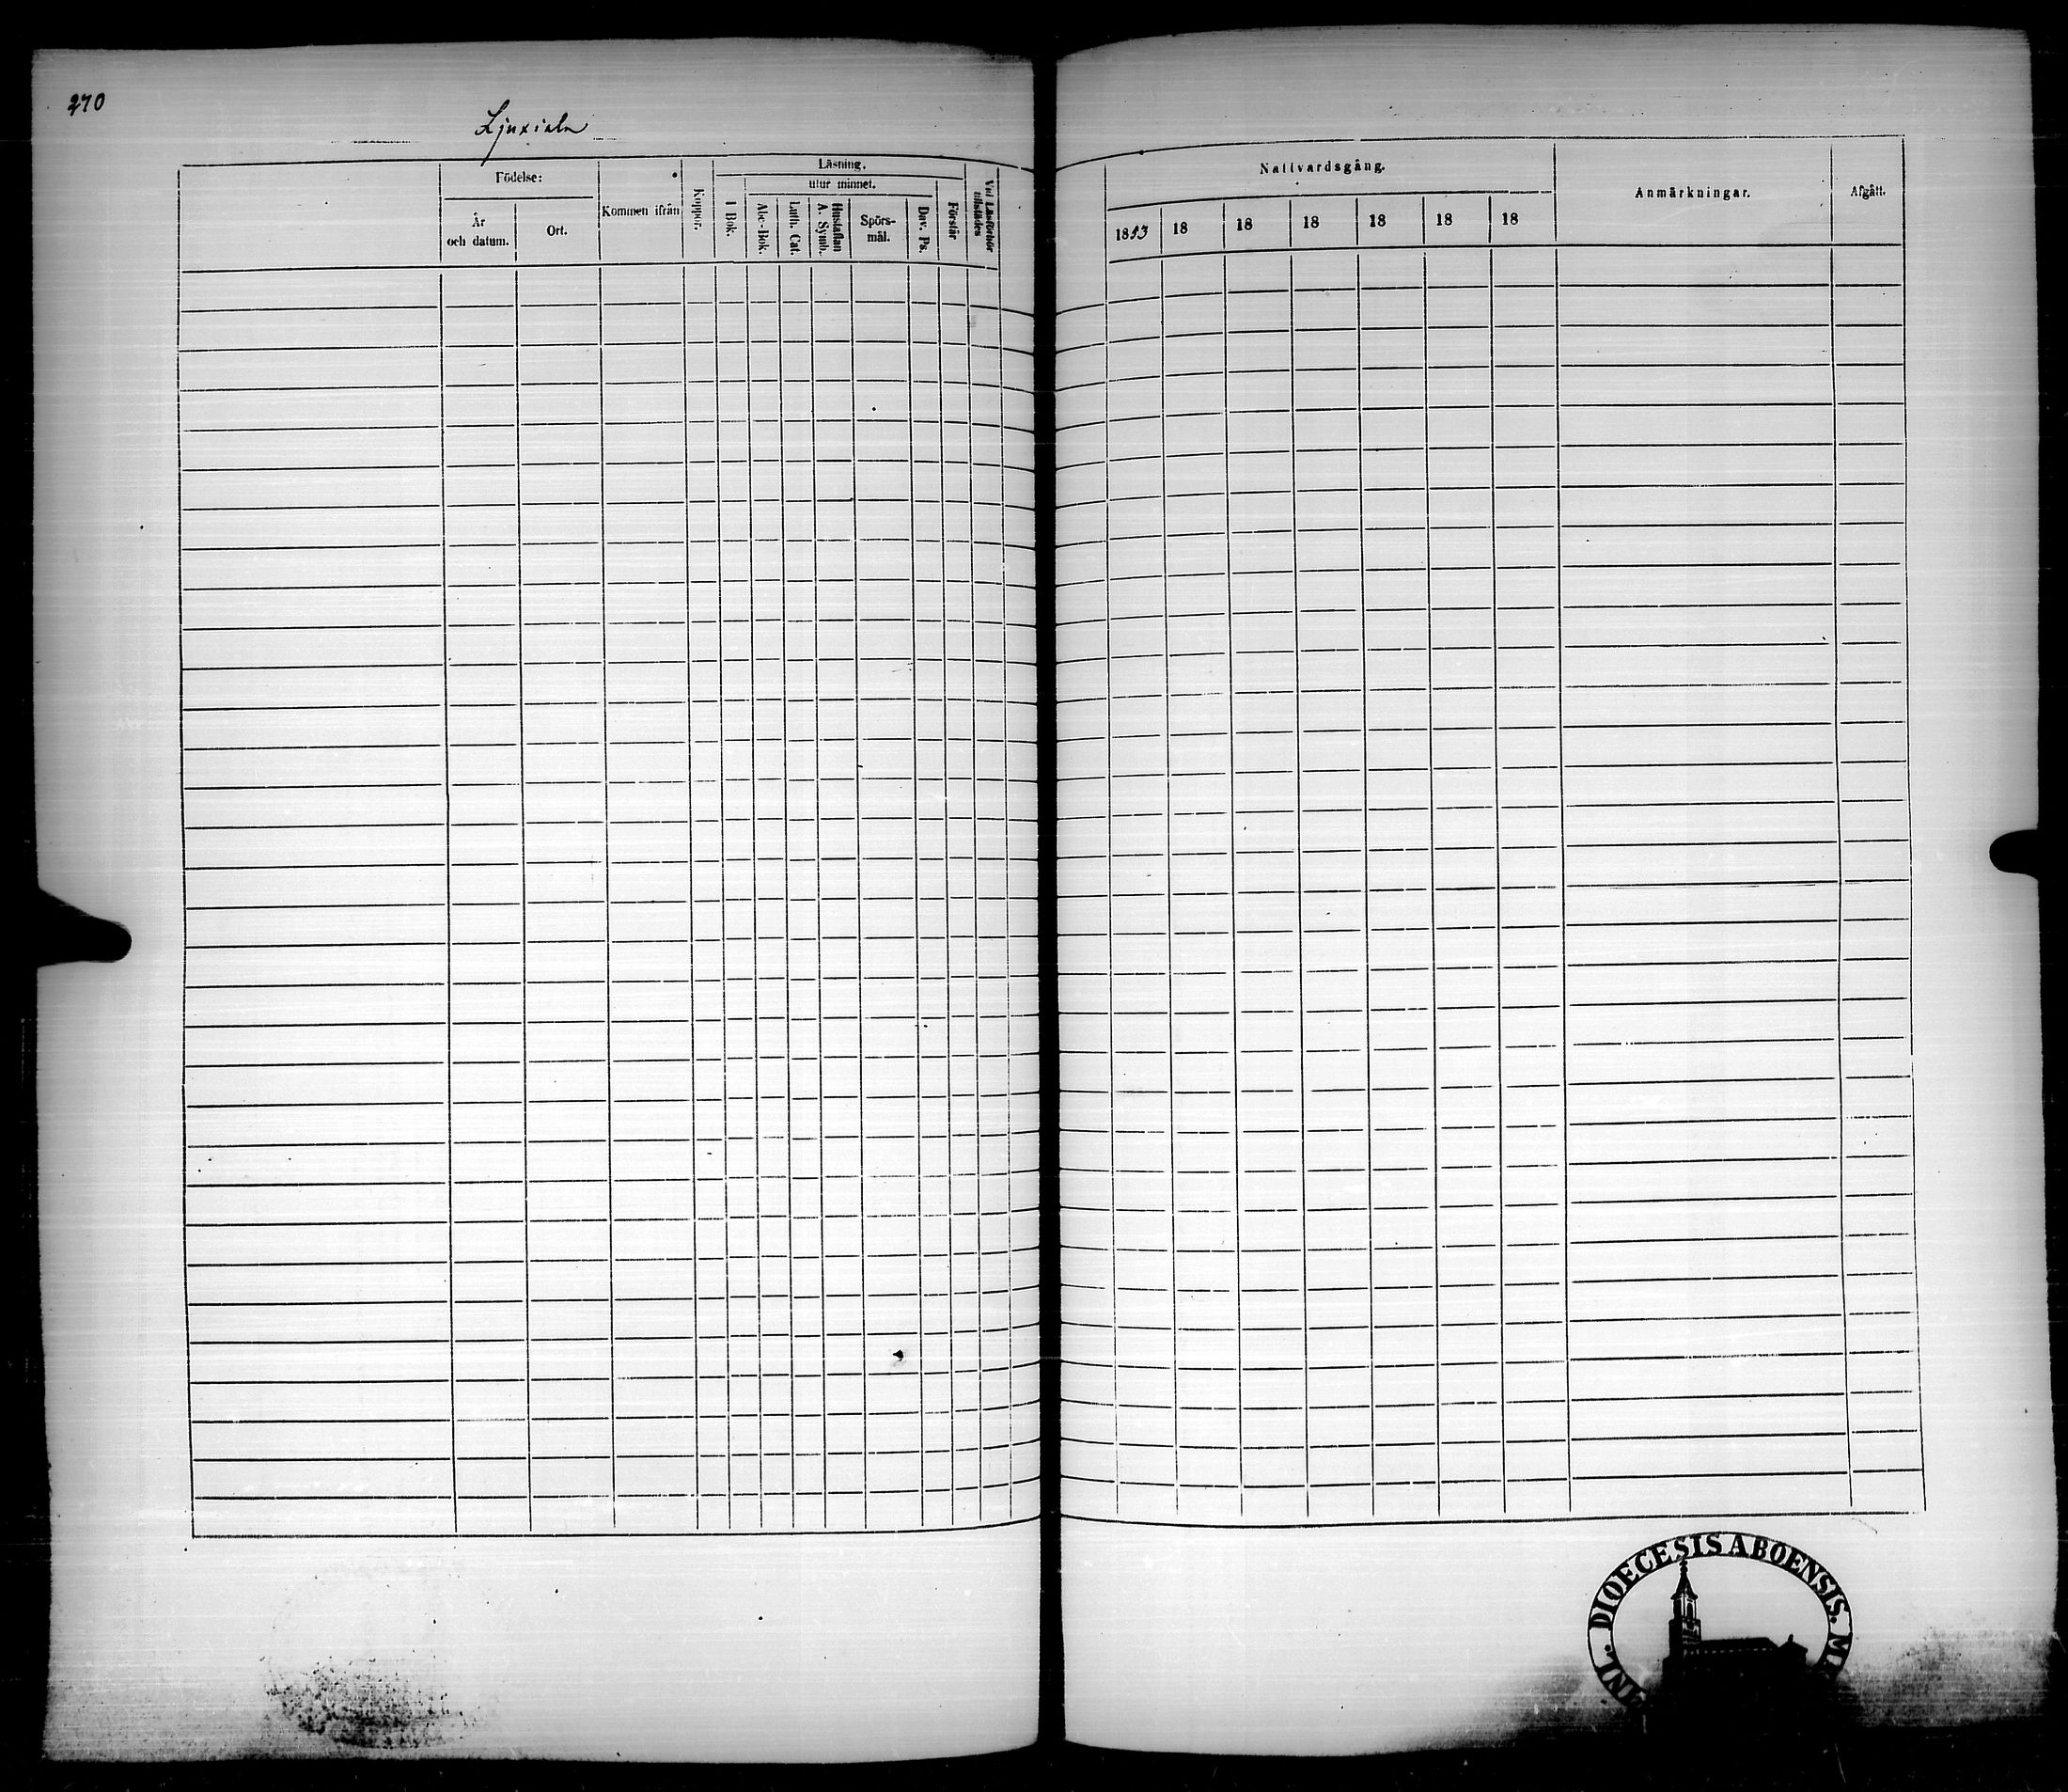 270
Ljuxiala
Födelse:
År
och datum.
Ort.
Kommen ifrån
Koppor.
Läsning.
utur minnet.
I Bok.
Abc-Bok.
Luth. Cat.
Hustaflan
A. Symb.
Spörs-
mål.
Dav. Ps.
Förstår
Vid Läsförhör
tillstädes
Nattvardsgång.
1853 18 18 18 18 18 18
Anmärkningar.
Afgått.
DIOECESIS ABOENSIS.